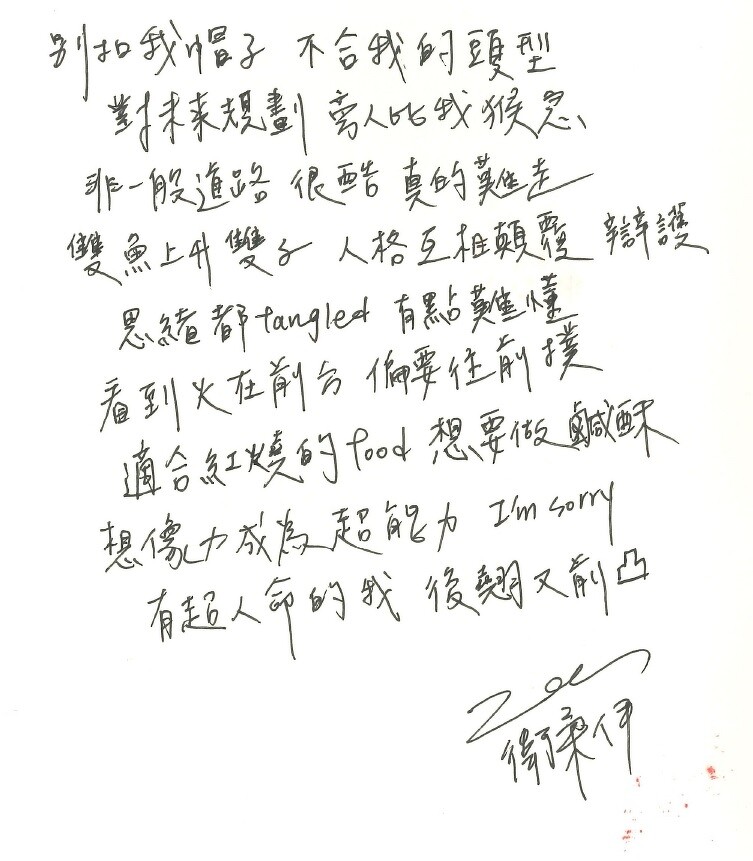 別扣我帽子 不合我的頭型
對未來規劃 旁人比我猴急
非一般進路 很酷 真的難走
雙魚上升雙子 人格互相顛覆 辯護
思緒都tangled 有點難懂
看到火在前台 偏要往前撲
適合紅燒的food 想要做鹹酥
想像力成為超能力 I'm sorry
有超人命的我 後翹又前凸
Zoe
衛柔伊